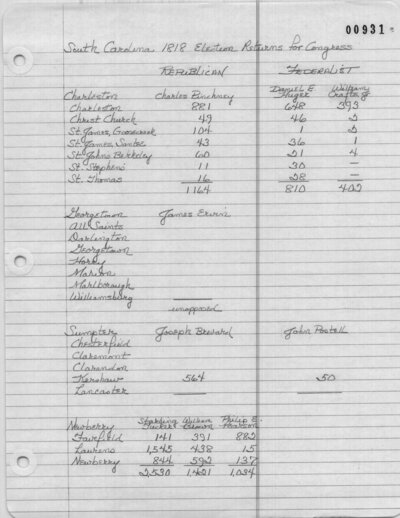 00931
South Carolina 1818 Election Returns for Congress
REPUBLICAN FEDERALIST
Charleston Charles Pinckney Daniel E. Huger William Crafts Jr
Charleston 881 648 393
Christ Church 49 46 2
St. James, Goosecreek 104 1 2
St. James, Santee 43 36 1
St. Johns Berkeley 60 21 4
St. Stephens 11 30 —
St. Thomas 16 28 —
1164 810 402
Georgetown James Ervin
All Saints
Darlington
Georgetown
Horry
Marion
Marlborough
Williamsburg
unopposed
Sumpter Joseph Brevard John Postell
Chesterfield
Claremont
Clarendon
Kershaw 564 50
Lancaster
Newberry Starling Tucker William Philip E. Pearson
Fairfield 141 391 882
Laurens 1,545 438 15
Newberry 844 592 137
2,530 1,421 1,034